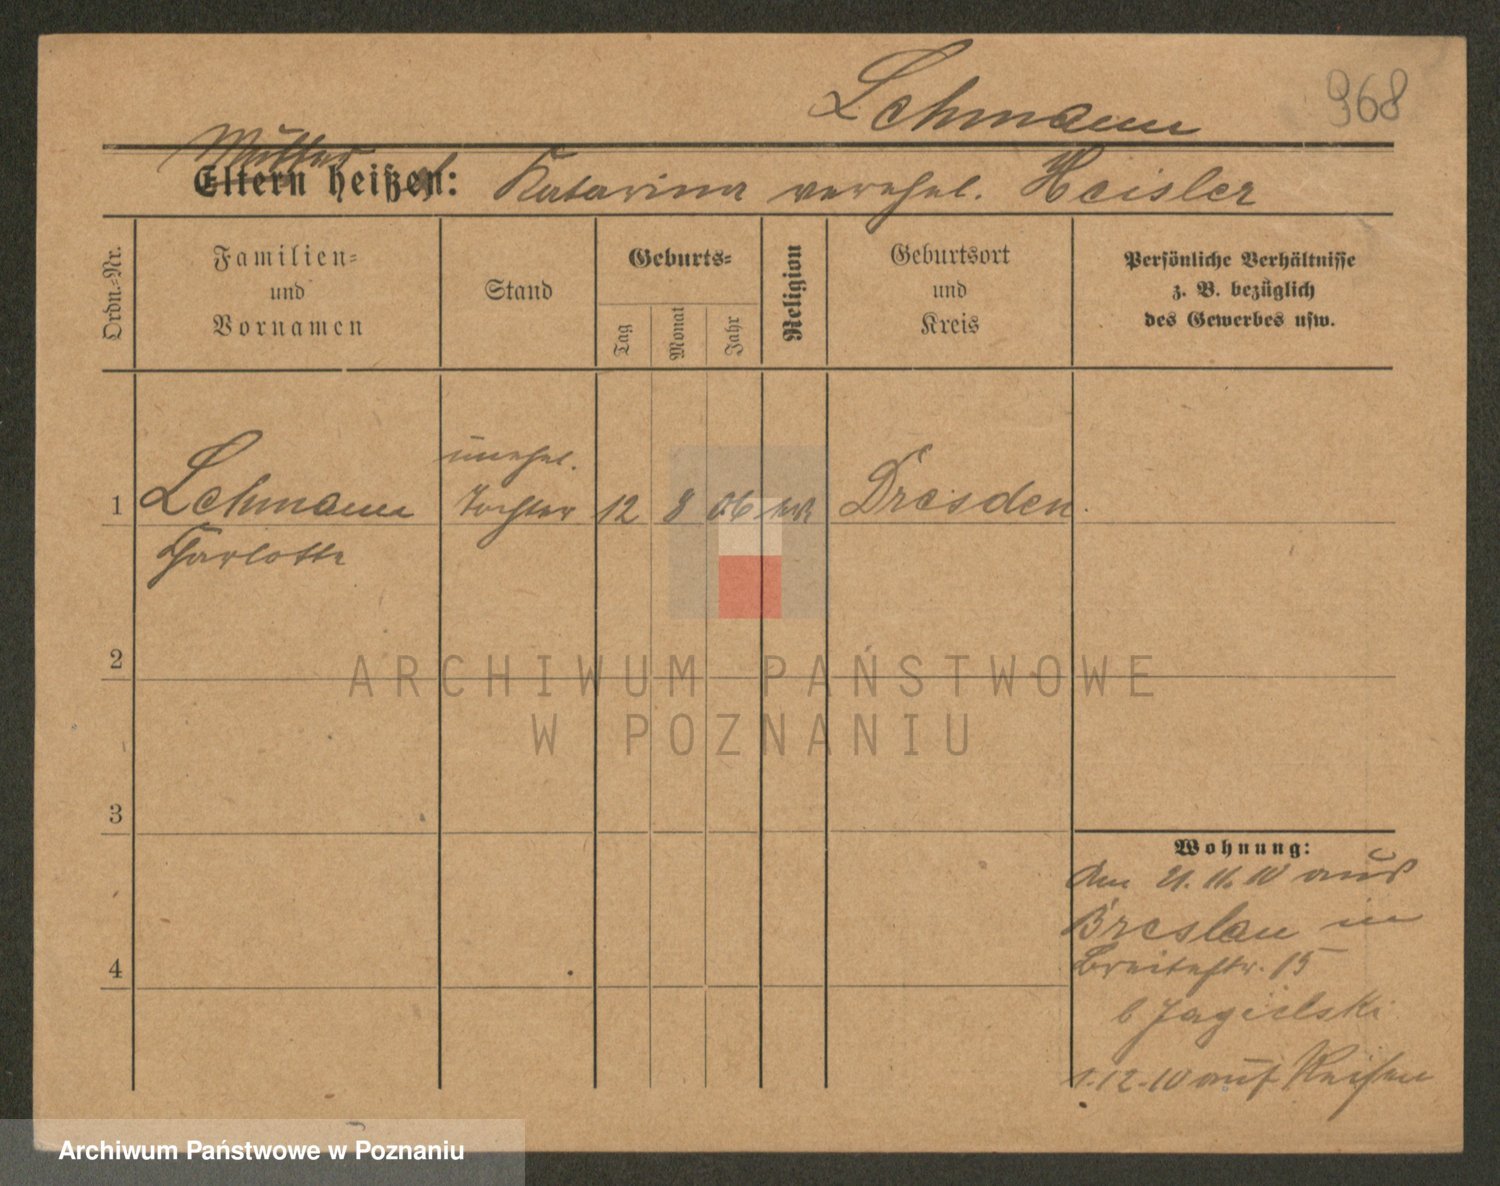 Lehmann
968
Mutter
Eltern heißen: Katarina verehel. Heisler
Ordn.-Nr.
Familien-
und
Vornamen
Stand
Geburts-
Tag
Monat
Jahr
Religion
Geburtsort
und
Kreis
Persönliche Verhältnisse
z. B. bezüglich
des Gewerbes usw.
unehel.
1 Lehmann Tochter 12 8 06 Dresden
Charlotte
2
3
4
Wohnung:
Am 21.11.10 aus
Breslau in
Breitestr. 15
b Jagielski
1.12.10 auf Reisen
ARCHIWUM PAŃSTWOWE
W POZNANIU
Archiwum Państwowe w Poznaniu